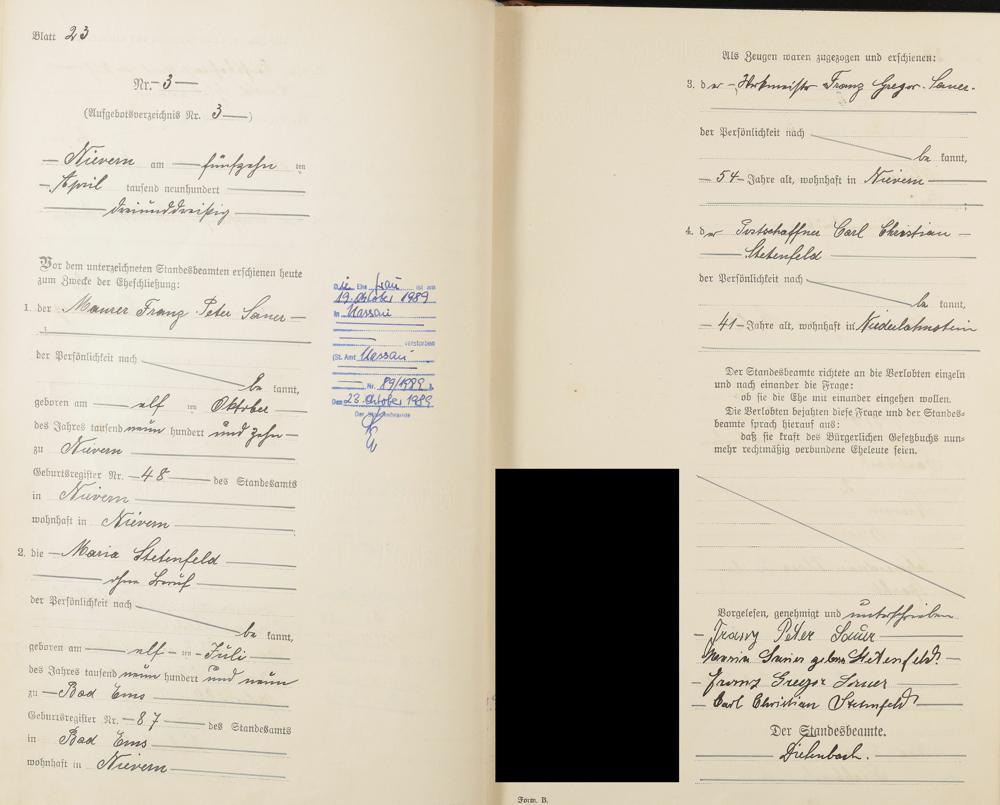 Blatt 23
Nr. 3
(Aufgebotsverzeichnis Nr. 3)
Nievern am fünfzehn ten
April tausend neunhundert
dreiunddreißig
Vor dem unterzeichneten Standesbeamten erschienen heute
zum Zwecke der Eheschließung:
1. der Maurer Franz Peter Sauer
der Persönlichkeit nach
be kannt,
geboren am elf ten Oktober
des Jahres tausend neun hundert und zehn
zu Nievern
Geburtsregister Nr. 48 des Standesamts
in Nievern
wohnhaft in Nievern
2. die Maria Stetenfeld
ohne Beruf
der Persönlichkeit nach
be kannt,
geboren am elf ten Juli
des Jahres tausend neun hundert und neun
zu Bad Ems
Geburtsregister Nr. 87 des Standesamts
in Bad Ems
wohnhaft in Nievern
Die Ehe frau ist am
19. Oktober 1989
in Nassau
verstorben
(St. Amt Nassau
Nr. 89/1989).
Den 23. Oktober 1989
Der Standesbeamte
Als Zeugen waren zugezogen und erschienen:
3. der Werkmeister Franz Gregor Sauer
der Persönlichkeit nach
be kannt,
54 Jahre alt, wohnhaft in Nievern
4. der Postschaffner Carl Christian
Stetenfeld
der Persönlichkeit nach
be kannt,
41 Jahre alt, wohnhaft in Niederlahnstein
Der Standesbeamte richtete an die Verlobten einzeln
und nach einander die Frage:
ob sie die Ehe mit einander eingehen wollen.
Die Verlobten bejahten diese Frage und der Standes-
beamte sprach hierauf aus:
daß sie kraft des Bürgerlichen Gesetzbuchs nun-
mehr rechtmäßig verbundene Eheleute seien.
Vorgelesen, genehmigt und unterschrieben
Franz Peter Sauer
Maria Sauer geborene Stetenfeld
Franz Gregor Sauer
Carl Christian Stetenfeld
Der Standesbeamte.
Diefenbach.
Form. B.